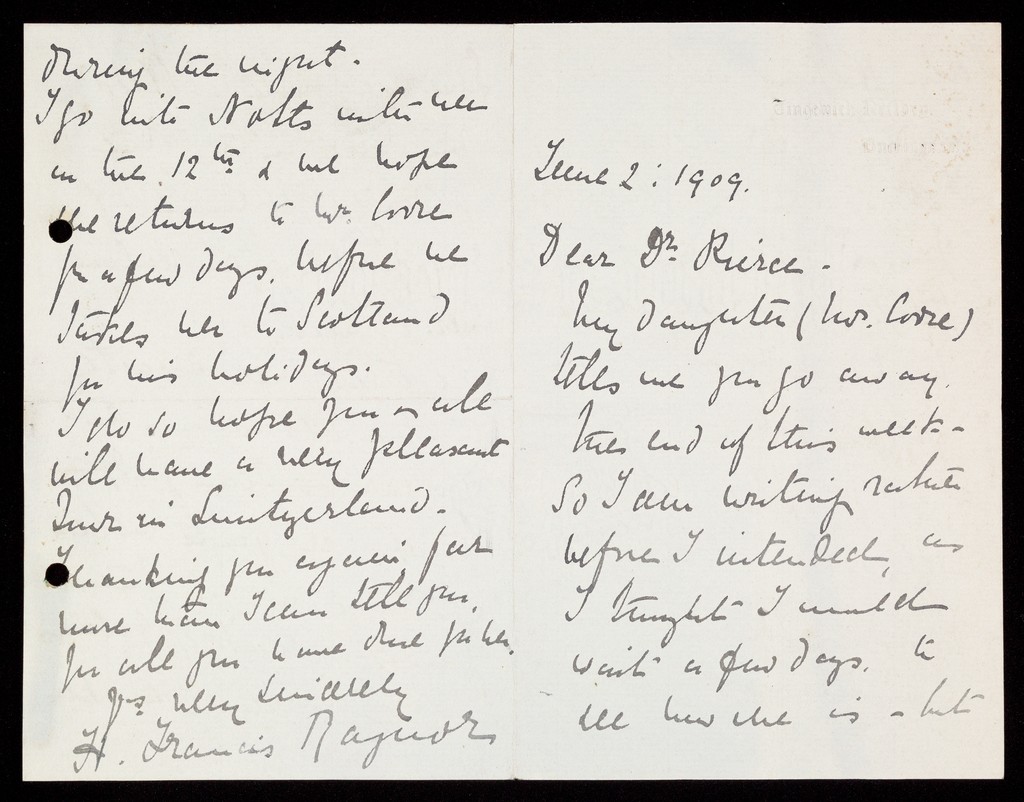 June 2: 1909.
Dear Dr. Pierce -
My daughter (Mrs. Coore)
tells me you go away
the end of this week -
So I am writing rather
before I intended, as
I thought I would
wait a few days, to
see how she is - but
during the night.
I go into Notts with her
on the 12th & we hope
she returns to Mr. Coore
for a few days, before he
takes her to Scotland
for his holidays.
I do so hope you all
will have a very pleasant
Tour in Switzerland.
Thanking you again far
more than I can tell you,
for all you have done for her.
Yrs very sincerely
H. Francis Raynor